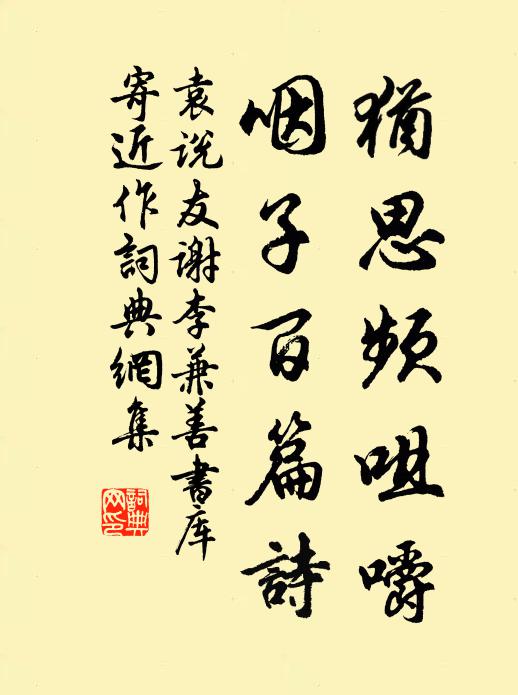 猶思頻咀嚼
咽子百篇詩
袁说友谢李兼善書库
寄近作詞典網集
詞典网印